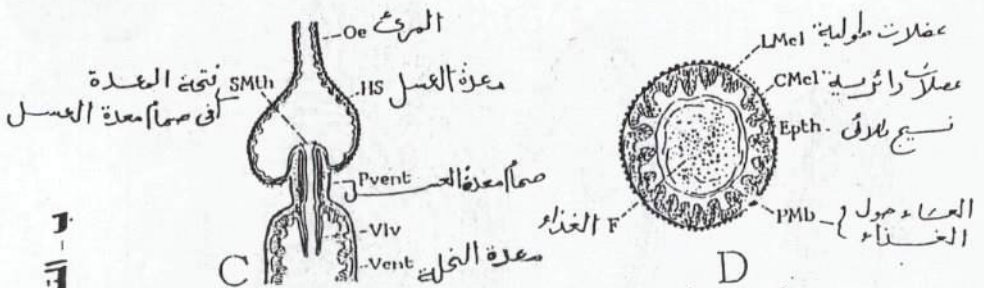 Oe المرئ
SMth فتحة المعدة
فى صمام معدة العسل
HS معدة العسل
Pvent صمام معدة العسل
Vlv
Vent معدة النحلة
C
LMcl عضلات طولية
CMcl عضلات دائرية
Epth. نسيج طلائى
PMb الغشاء حول
الغذاء
F الغذاء
D